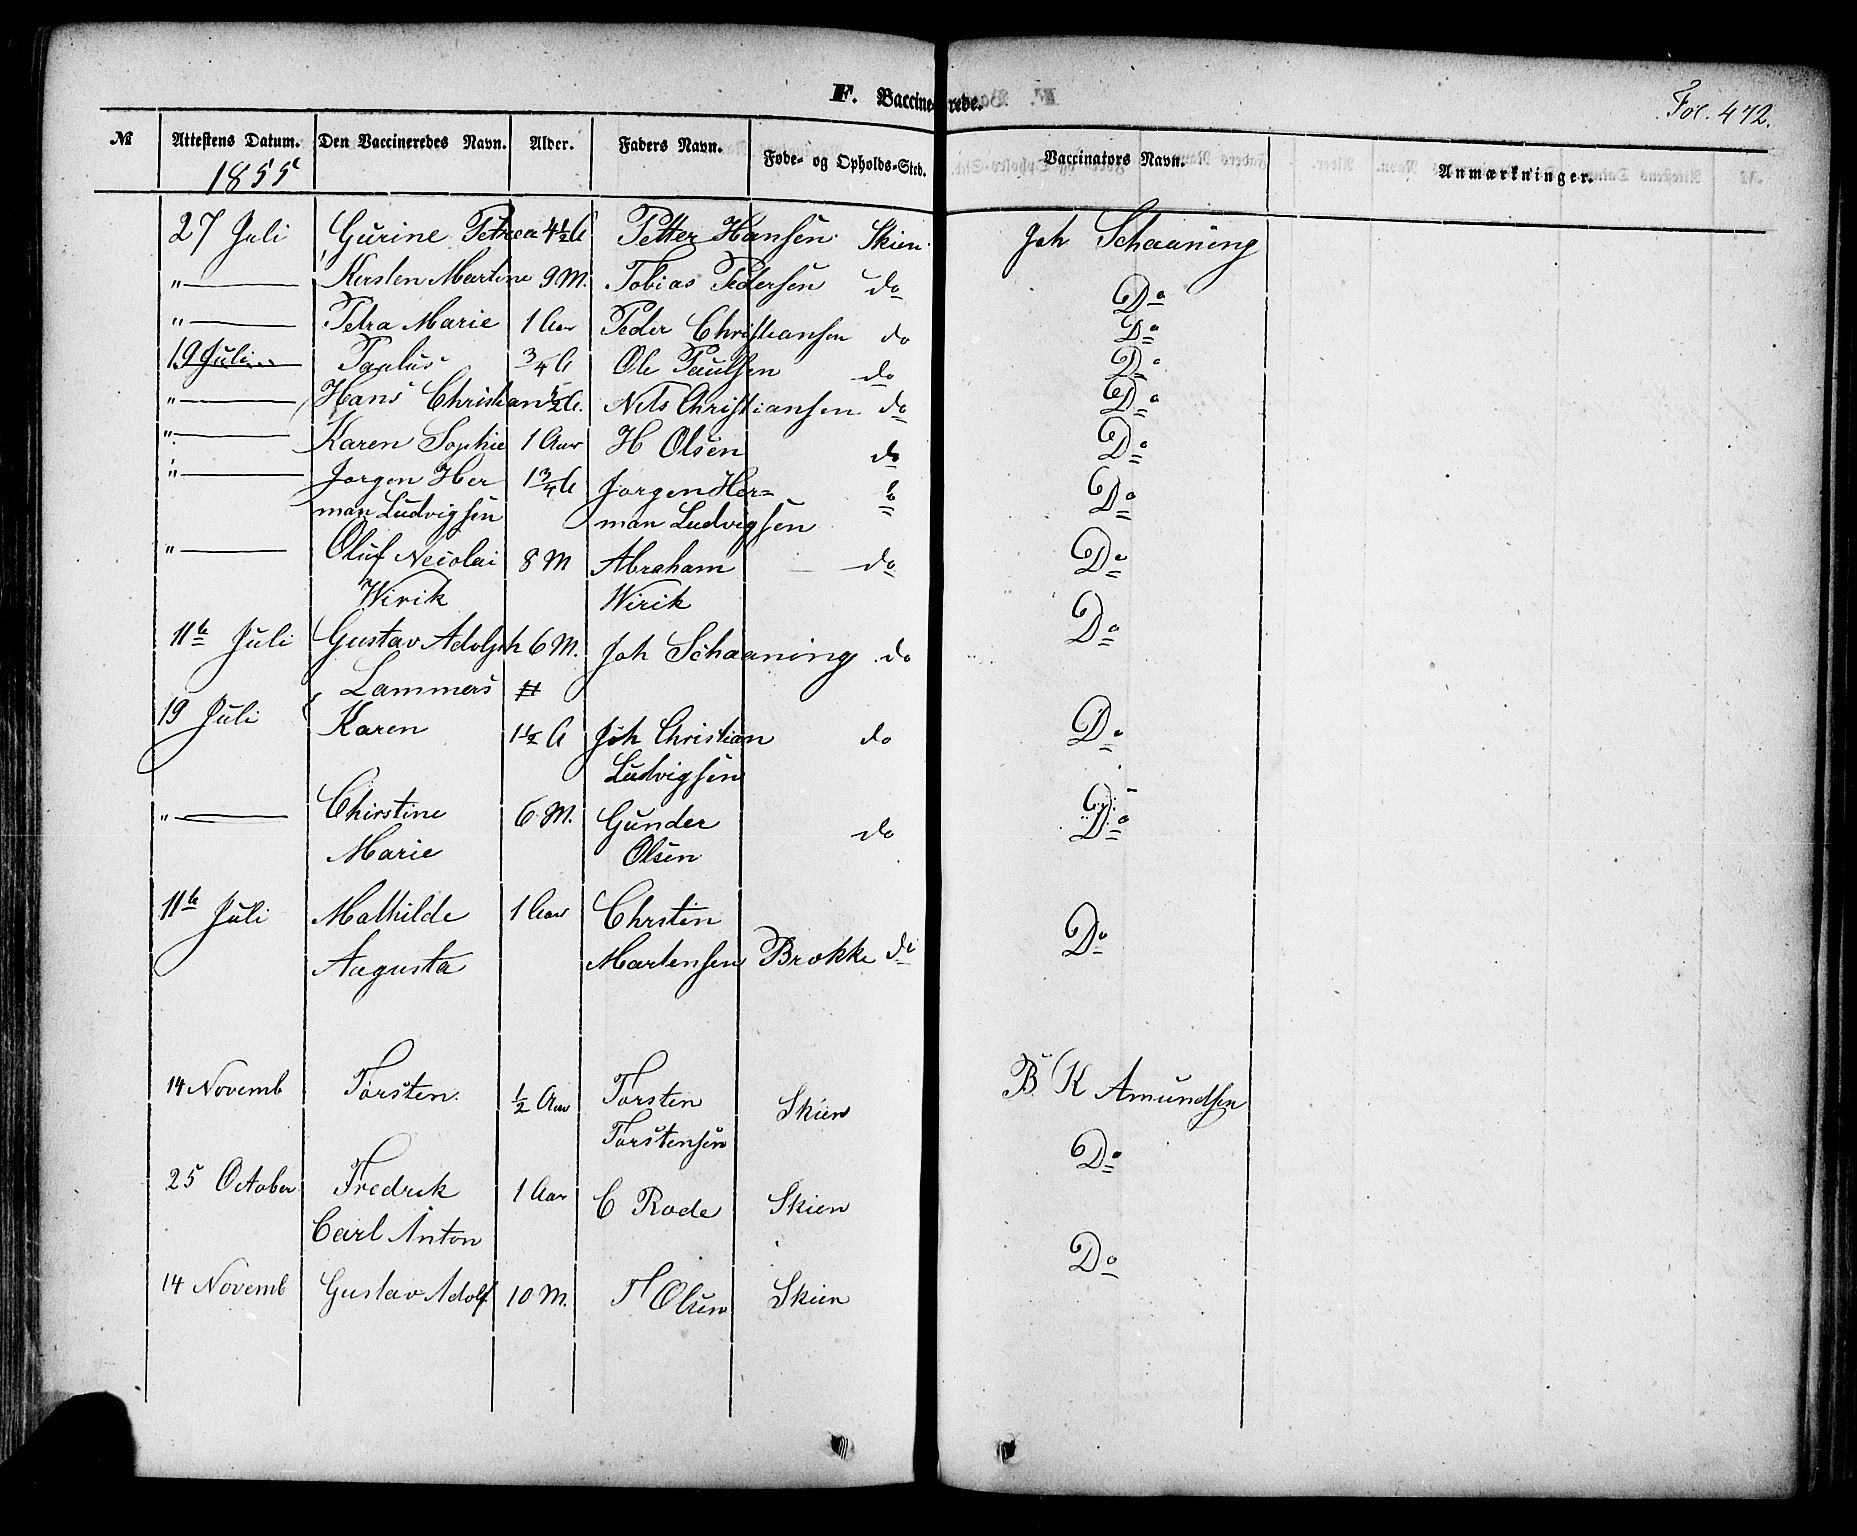 F. Vaccinerede.
Fol. 472.
№ Attestens Datum. Den Vaccineredes Navn. Alder. Faders Navn. Føde- og Opholds-Sted. Vaccinators Navn. Anmærkninger.
1855
27 Juli Gurine Petrea 4½ A Petter Hansen Skien Joh Schaaning
" Kirsten Martine 9 M. Tobias Pedersen do Do
" Petra Marie 1 Aar Peder Christiansen do Do
19 Juli Paulus ¾ A Ole Paulsen do Do
" Hans Christian ½ A. Nils Christiansen do Do
" Karen Sophie 1 Aar H Olsen do Do
" Jørgen Her 1¾ A Jørgen Her= do Do
man Ludvigsen man Ludvigsen
" Oluf Nicolai 8 M Abraham do Do
Wirik Wirik
11te Juli Gustav Adolph 6 M. Joh Schaaning do Do
Lammers
19 Juli Karen 1½ A Joh Christian do Do
Ludvigsen
" Chirstine 6 M. Gunder do Do
Marie Olsen
11te Juli Mathilde 1 Aar Chrsten Do
Augusta Martensen Brekke do
14 Novemb Torsten ½ Aar Torsten Skien B K Amundsen
Torstensen
25 October Fredrik 1 Aar C Rode Skien Do
Carl Anton
14 Novemb Gustav Adolf 10 M. T Olsen Skien Do